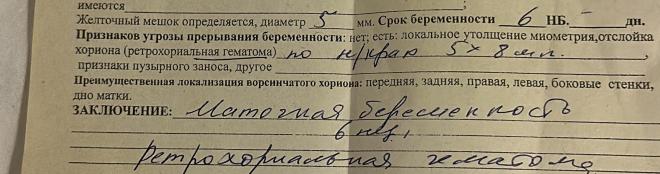 имеются ;
Желточный мешок определяется, диаметр 5 мм. Срок беременности 6 НБ. – дн.
Признаков угрозы прерывания беременности: нет; есть: локальное утолщение миометрия,отслойка
хориона (ретрохориальная гематома) по н/краю 5×8 мм. ,
признаки пузырного заноса, другое
Преимущественная локализация ворсинчатого хориона: передняя, задняя, правая, левая, боковые стенки,
дно матки.
ЗАКЛЮЧЕНИЕ: Маточная беременность
6 нед,
Ретрохориальная гематома